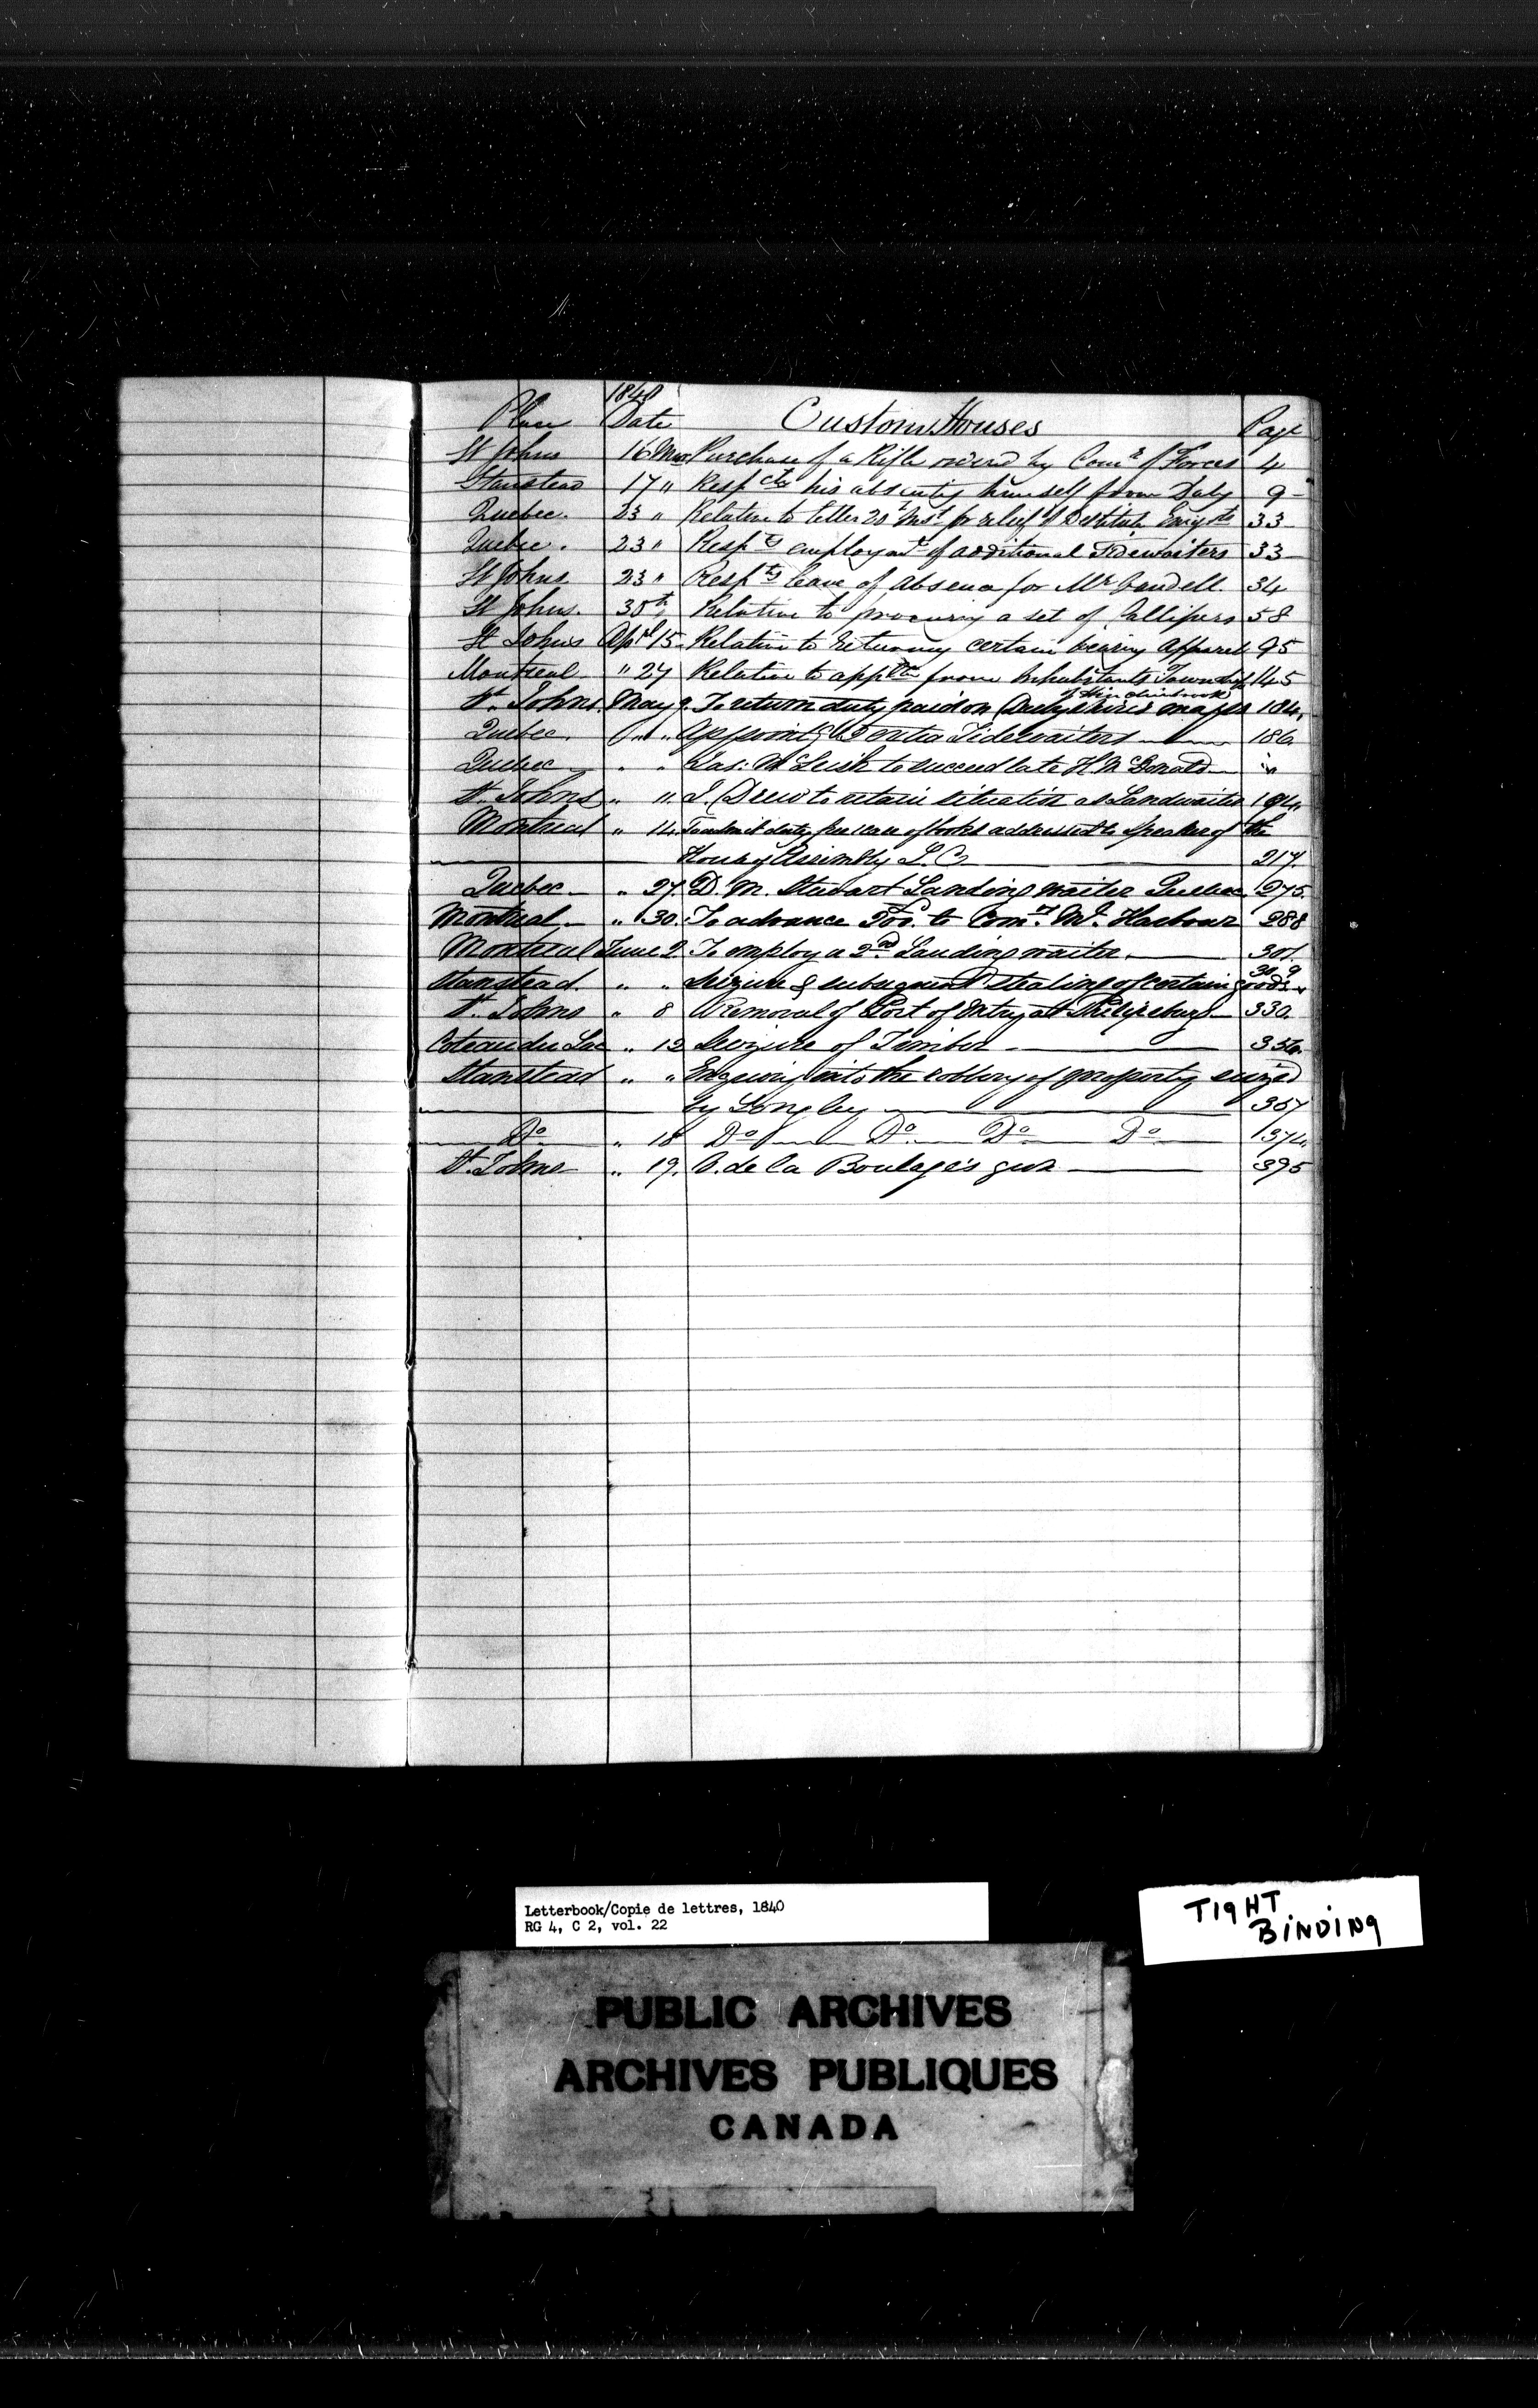 1840
Place Date Custom Houses Page
St Johns 16 Mar Purchase of a Rifle by Comr of Forces 4
Stanstead 17 " Respctg his absenting himself from Duty 9
Quebec. 23 " Relative to letter 20th Inst for relief of Destitute Emigts 33
Quebec. 23 " Respg employmt of additional Tidewaiters 33
St Johns 23 " Respg leave of absence for Mr 34
St Johns. 30th Relative to procuring a set of Callipers 58
St Johns Apl 15. Relative to returning certain wearing Apparel 95
Montreal " 27 Relative to appltn from Inhabitants Township 145
of Hinchinbrook
St. Johns. May 9. To return duty paid on maps 184.
Quebec. " " Appointg Extra Tidewaiters 186
Quebec " " Jas: McLeish to succeed late H McDonald "
St. Johns " 11. Drew to retain situation as Landwaiter 194.
Montreal " 14. duty case of books addressed to Speaker of the
House of Assembly 217.
Quebec " 27. D. M. Stewart Landing waiter Quebec 275.
Montreal " 30. To advance to Comrs Ml. Harbour 288
Montreal June 2 To employ a 2nd Landing waiter. 301.
Stanstead. " " Seizure & subsequent stealing of certain goods 309
St. Johns " 8 Removal of Port of Entry at Philipsburg 330.
Coteau du Lac " 13 Seizure of Timber 356.
Stanstead " " Enquiry into the robbery of property seized
by Longley 357
Do " 18 Do Do Do Do 374.
St. Johns " 19. de la gun 395
Letterbook/Copie de lettres, 1840
RG 4, C 2, vol. 22
TIGHT
BINDING
PUBLIC ARCHIVES
ARCHIVES PUBLIQUES
CANADA